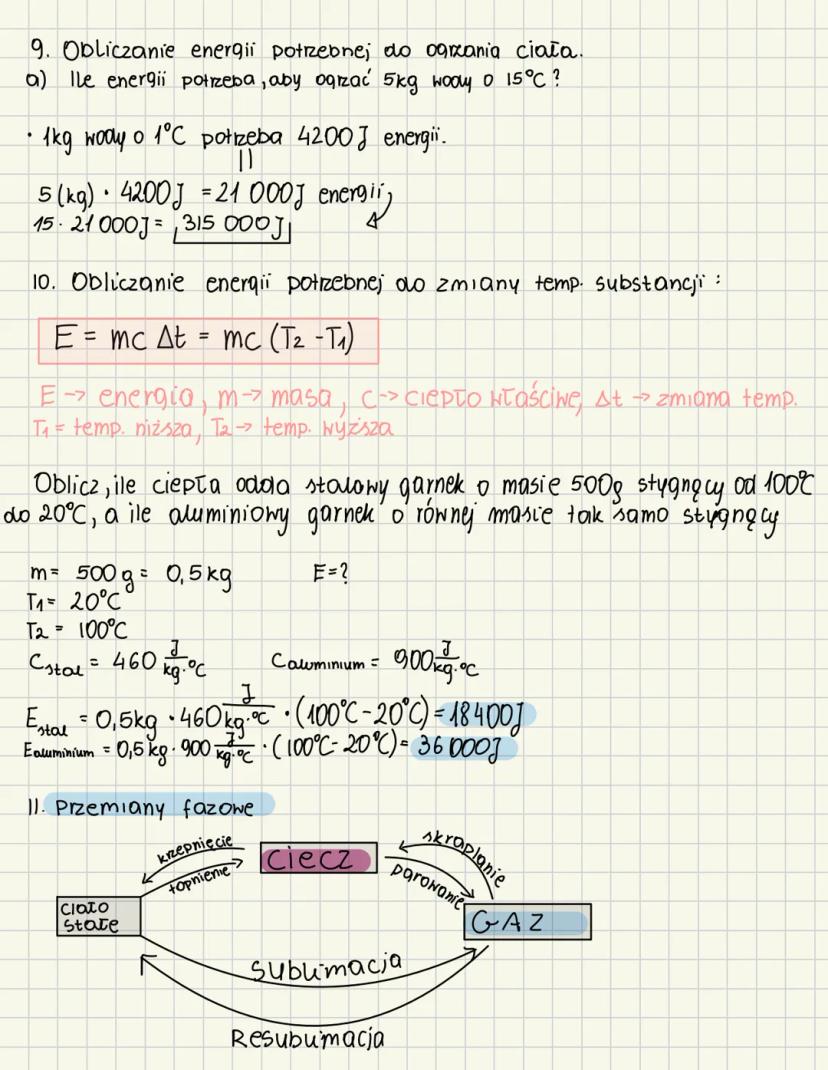 9. Obliczanie energii potrzebnej do ogrzania ciała.
a) Ile energii potrzeba, aby ogrzać 5kg wody o 15°C?
· 1kg wody o 1°C potrzeba 4200J energii.
||
5 (kg) · 4200J = 21 000J energii,
15 · 21 000J = 315 000J
10. Obliczanie energii potrzebnej do zmiany temp. substancji:
E = mc Δt = mc (T2 - T1)
E -> energia, m -> masa, c -> ciepło właściwe, Δt -> zmiana temp.
T1 = temp. niższa, T2 -> temp. wyższa
Oblicz, ile ciepła odda stalowy garnek o masie 500g stygnący od 100°C
do 20°C, a ile aluminiowy garnek o równej masie tak samo stygnący
m = 500 g = 0,5 kg E = ?
T1 = 20°C
T2 = 100°C
Cstal = 460 J/kg·°C Caluminium = 900 J/kg·°C
Estal = 0,5kg · 460 J/kg·°C · (100°C - 20°C) = 18400J
Ealuminium = 0,5 kg · 900 J/kg·°C · (100°C - 20°C) = 36 000J
11. Przemiany fazowe
krzepnięcie
topnienie
ciecz
skraplanie
parowanie
Ciało
stałe
GAZ
Sublimacja
Resublimacja